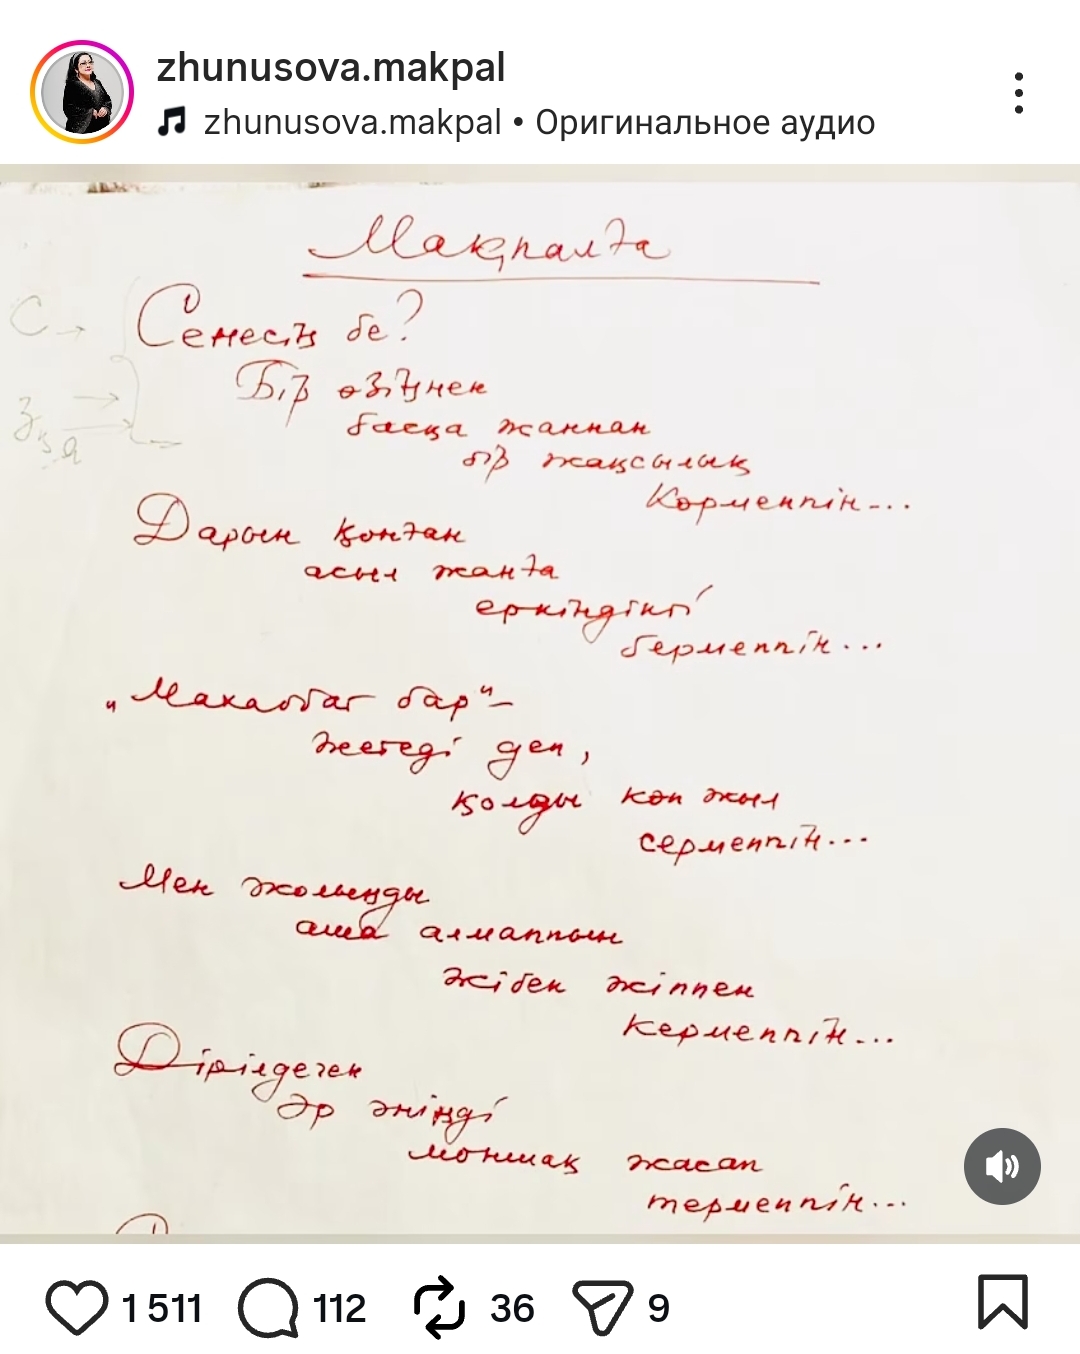 zhunusova.makpal
zhunusova.makpal • Оригинальное аудио
Мақпалға
Сенесің бе?
Бір өзіңнен
басқа жаннан
бір жақсылық
Көрмеппін...
Дарын қонған
асыл жанға
еркіндікті
бермеппін...
„Махаббат бар“ –
жетеді деп,
қолды көп жыл
сермеппін...
Мен жолыңды
аша алмаппын
жібек жіппен
Кермеппін...
Дірілдеген
әр әніңді
моншақ жасап
термеппін...
1 511 112 36 9